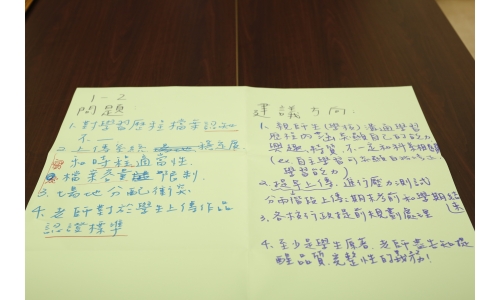 1-2
問題:
1. 對學習歷程檔案認知
不一
2. 上傳系統 穩定度
和時程適當性.
檔案容量 限制.
3. 場地分配衝突
4. 老師對於學生上傳作品
認證標準
建議方向:
1. 親師生(學校)溝通學習
歷程內 自己的能力
興趣、特質, 不一定和科系相關
(ex 自主學習
學習能力)
2. 提早上傳, 進行壓力測試
分兩階段上傳:期末前和學期結
束
3. 各校行政提前規劃處理
4. 至少是學生原著, 老師盡告知提
醒品質、完整性的義務!